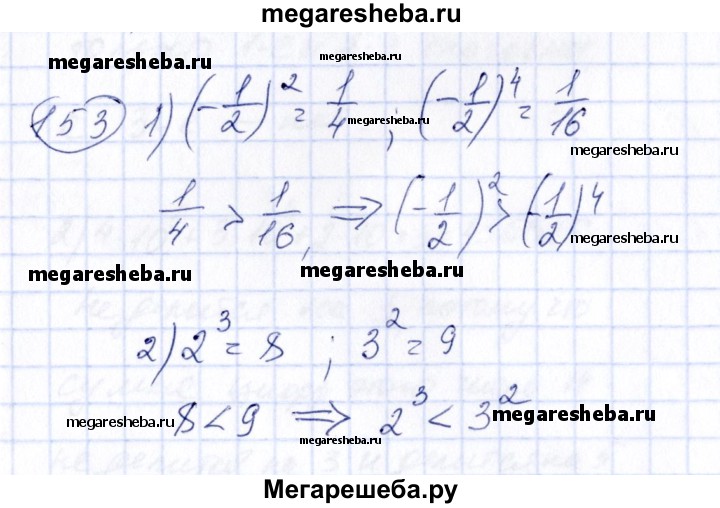 megaresheba.ru
megaresheba.ru
153 1) (-1/2)² = 1/4 ; (-1/2)⁴ = 1/16
megaresheba.ru
megaresheba.ru
1/4 > 1/16, ⇒ (-1/2)² > (-1/2)⁴
megaresheba.ru
megaresheba.ru
megaresheba.ru
2) 2³ = 8 ; 3² = 9
8 < 9 ⇒ 2³ < 3²
megaresheba.ru
megaresheba.ru
megaresheba.ru
Мегарешеба.ру